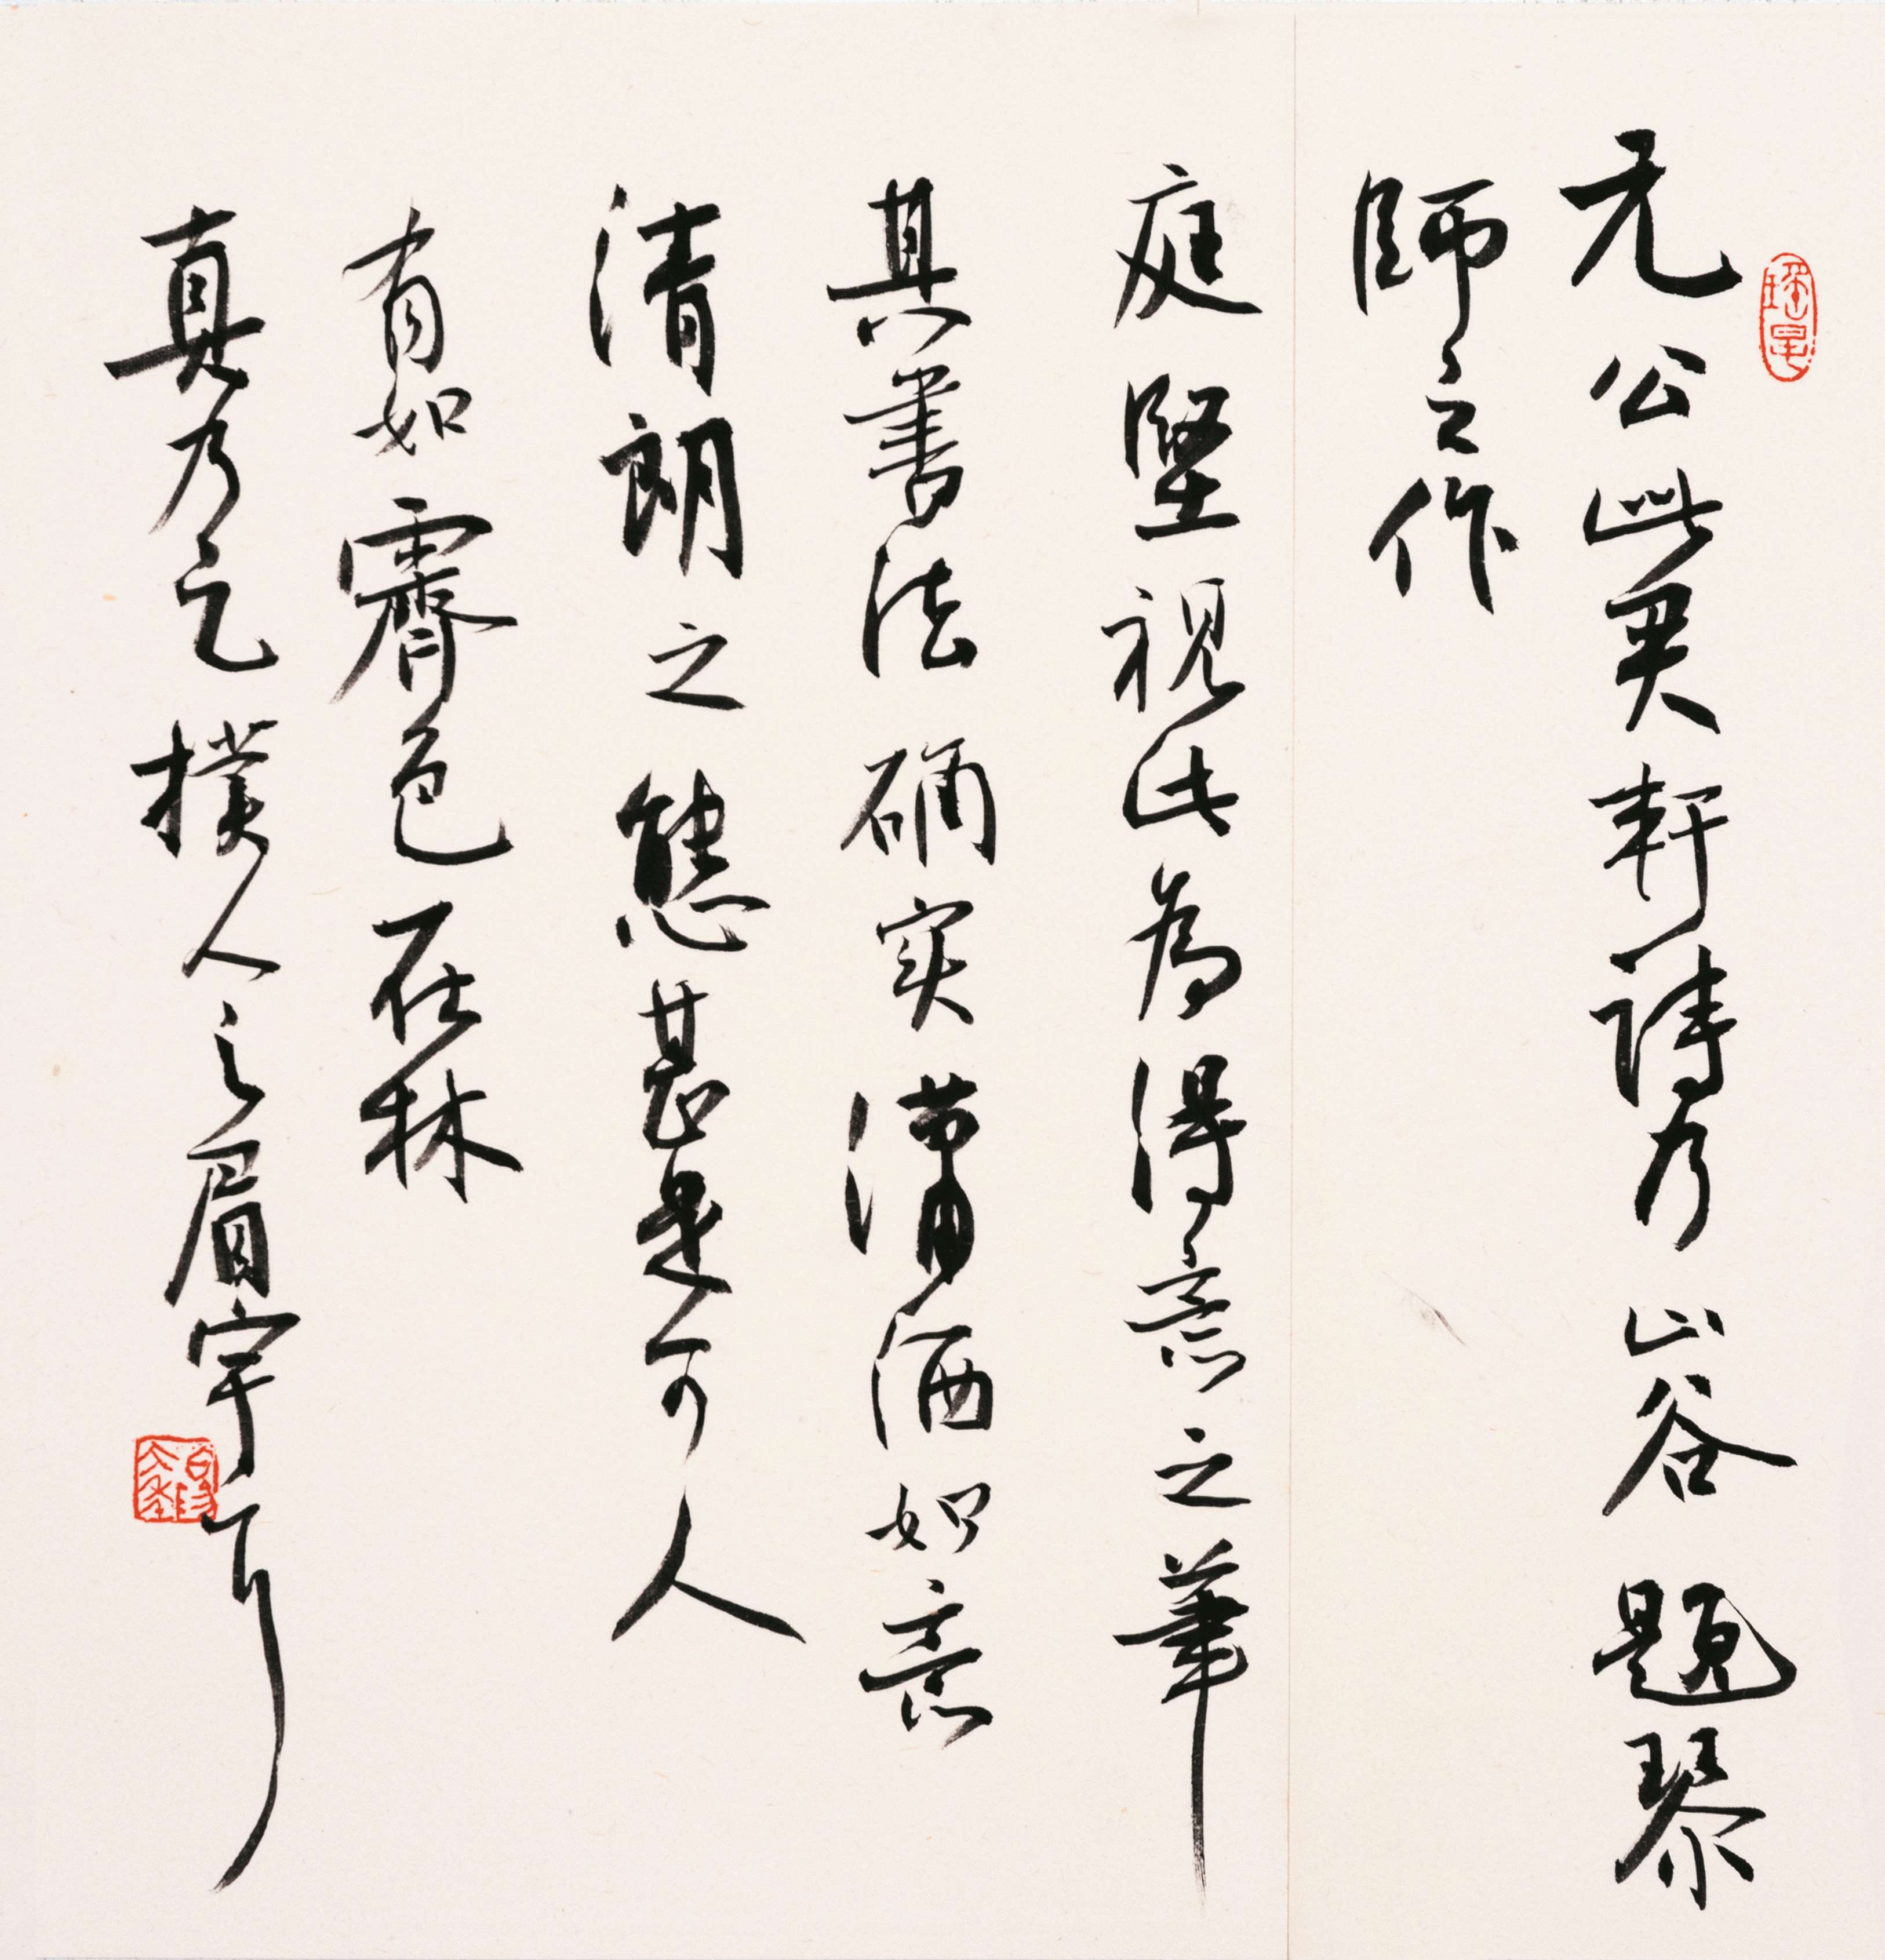 元公此君軒詩乃山谷題琴
師之作
庭堅視此為得意之筆
其書法确实潇洒如意
清朗之態甚是可人
有如霽色在林
真乃撲人之眉宇耳